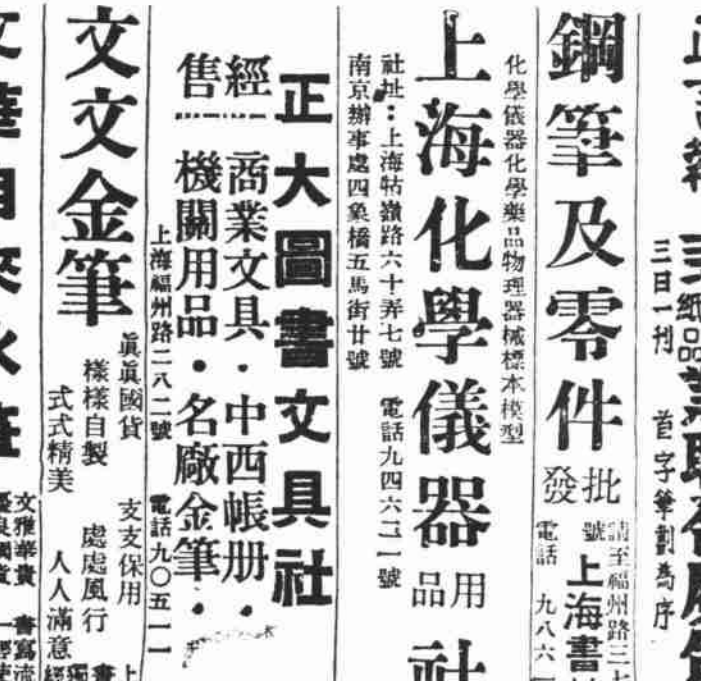 三日一刊
首字筆劃為序
鋼筆及零件
批發
請至福州路三七
號
上海書
電話 九八六一
化學儀器化學藥品物理器械標本模型
上海化學儀器
用品
社
社址：上海牯嶺路六十弄七號 電話九四六二一號
南京辦事處四象橋五馬街廿號
正大圖書文具社
經售
商業文具・中西帳册・
機關用品・名廠金筆・
上海福州路二八二號 電話九〇五一一
文文金筆
眞眞國貨 支支保用
樣樣自製 處處風行
式式精美 人人滿意
文雅華貴 書寫流